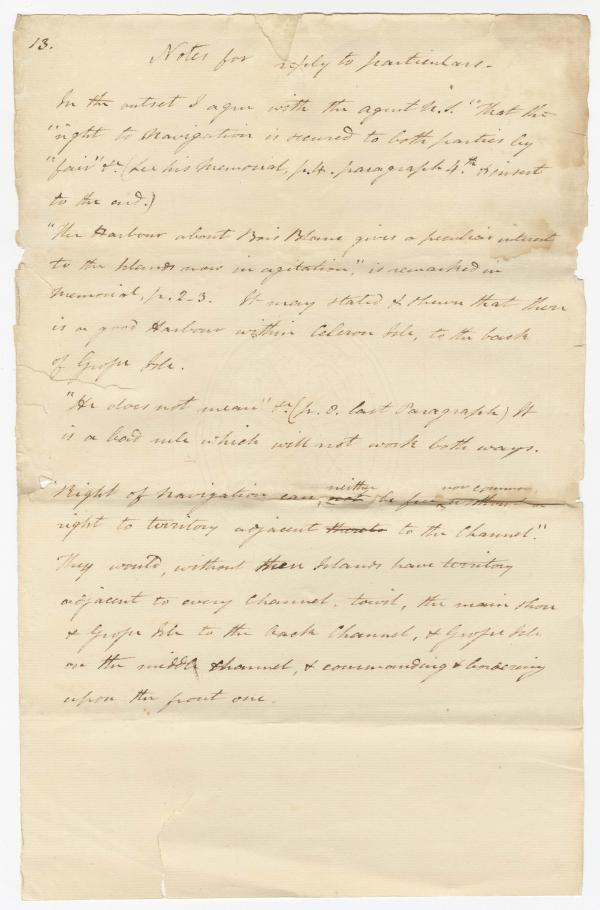 13.
Notes for reply to particulars.
In the outset I agree with the agent U.S. "That the
"right to Navigation is secured to both parties by
"fair" &c. (See his Memorial, p. 4. paragraph 4th. & insert
to the end.)
"The Harbour about Bois Blanc gives a peculiar interest
to the Islands now in agitation", is remarked in
Memorial, p. 2-3. It may stated & shewn that there
is a good Harbour within Celeron Isle, to the back
of Grosse Isle.
"He does not mean" &c. (p. 8. last Paragraph) It
is a bad rule which will not work both ways.
neither nor common,
"Right of Navigation can not be free, without a
right to territory adjacent thereto to the Channel".
They would, without these Islands have territory
adjacent to every Channel. towit, the main shore
& Grosse Isle to the back Channel, & Grosse Isle
on the middle channel, & commanding & bordering
upon the front one.